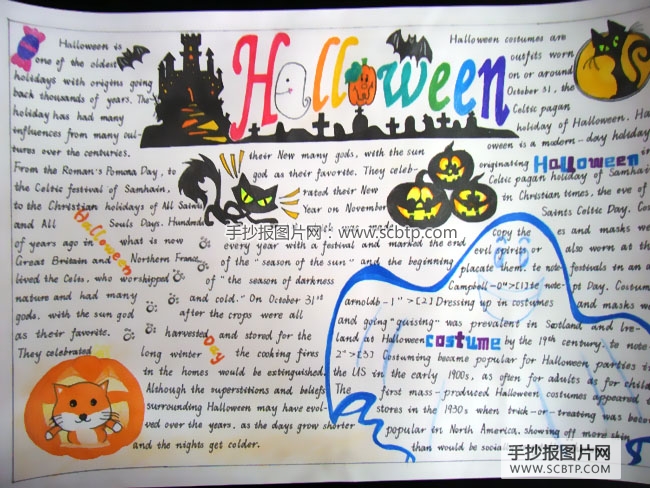 Halloween
Halloween is
one of the oldest
holidays with origins going
back thousands of years. The
holiday has had many
influences from many cul-
tures over the centuries.
From the Roman's Pomona Day, to
the Celtic festival of Samhain,
to the Christian holidays of All Saints
and All Souls Days. Hundreds
of years ago in what is now
Great Britain and Northern France,
lived the Celts, who worshipped
nature and had many
gods, with the sun god
as their favorite.
They celebrated
Halloween
their New many gods, with the sun
god as their favorite. They celeb-
rated their New
Year on November
every year with a festival and marked the end
of the "season of the sun" and the beginning
of "the season of darkness
and cold." On October 31st
after the crops were all
harvested and stored for the
long winter the cooking fires
in the homes would be extinguished.
Although the superstitions and beliefs
surrounding Halloween may have evol-
ved over the years, as the days grow shorter
and the nights get colder.
Day
Halloween costumes are
outfits worn
on or around
October 31, the
Celtic pagan
holiday of Halloween. Ha
oween is a modern-day holiday
originating Halloween in
Celtic pagan holiday of Samhain
in Christian times, the eve of
Saints Celtic Day. Cos
copy the es and masks we
evil spirits or also worn at the
placate them, to note festivals in an a
Campbell-0">[1] to note pt Day. Costum
arnoldb-1">[2] Dressing up in costumes and masks w
and going "guising" was prevalent in Scotland and Ire-
land at Halloween costume by the 19th century. to note
2">[3] Costuming became popular for Halloween parties i
the US in the early 1900s, as often for adults as for child
The first mass-produced Halloween costumes appeared
stores in the 1930s when trick-or-treating was becom
popular in North America, showing off more skin
than would be socia
手抄报图片网:www.scbtp.com
手抄报图片网
WWW.SCBTP.COM
手抄报图片网
WWW.SCBTP.COM